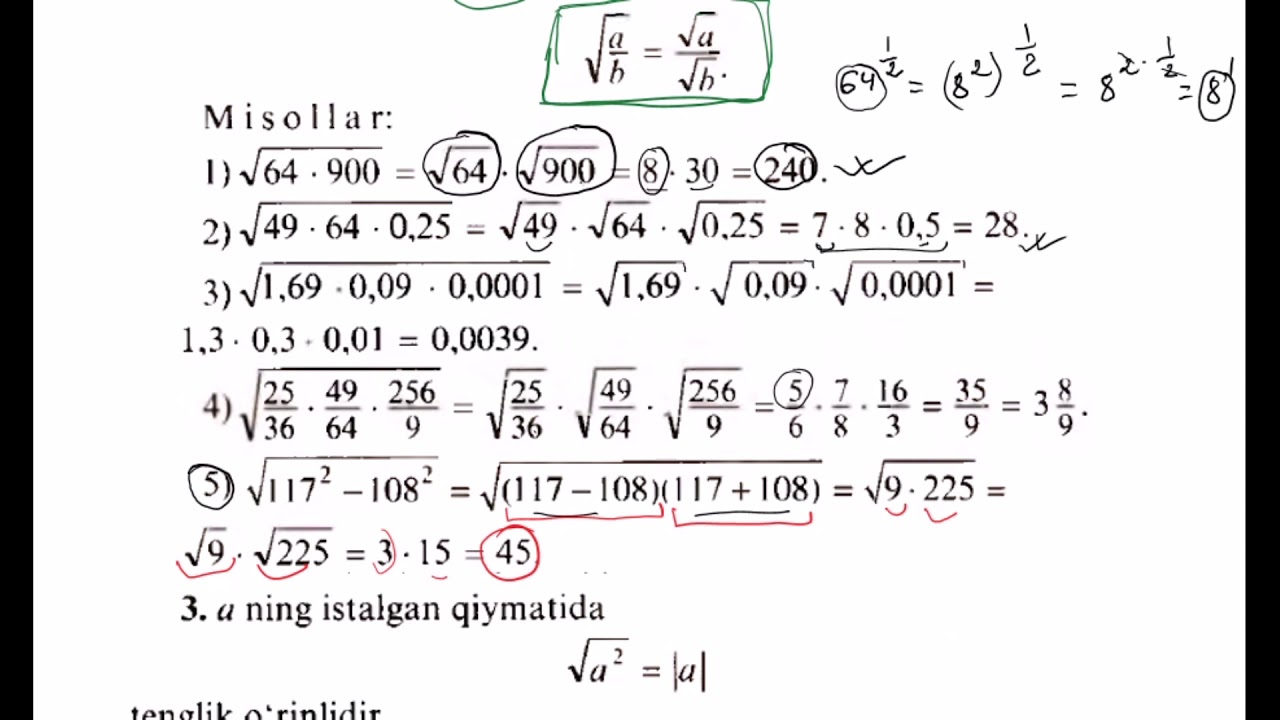 √(a/b) = √a/√b.
64^(1/2) = (8²)^(1/2) = 8^(2·1/2) = 8¹
Misollar:
1) √(64 · 900) = √64 · √900 = 8 · 30 = 240.
2) √(49 · 64 · 0,25) = √49 · √64 · √0,25 = 7 · 8 · 0,5 = 28.
3) √(1,69 · 0,09 · 0,0001) = √1,69 · √0,09 · √0,0001 =
1,3 · 0,3 · 0,01 = 0,0039.
4) √(25/36 · 49/64 · 256/9) = √(25/36) · √(49/64) · √(256/9) = 5/6 · 7/8 · 16/3 = 35/9 = 3 8/9.
5) √(117² − 108²) = √((117 − 108)(117 + 108)) = √(9 · 225) =
√9 · √225 = 3 · 15 = 45
3. a ning istalgan qiymatida
√a² = |a|
tenglik o‘rinlidir